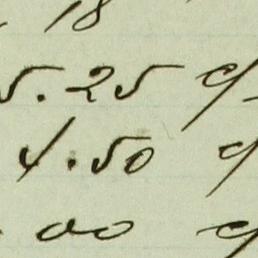 18
5.25 c/
4.50 c/
00 c/